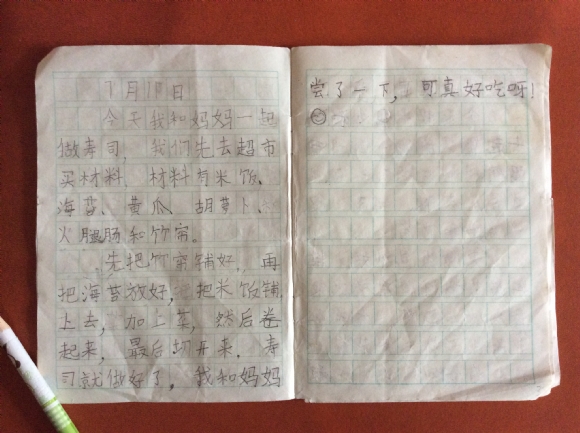 7月10日
今天我和妈妈一起
做寿司，我们先去超市
买材料、材料有米饭、
海苔、黄瓜、胡萝卜、
火腿肠和竹帘。
先把竹帘铺好，再
把海苔放好，把米饭铺
上去，加上菜，然后卷
起来，最后切开来，寿
司就做好了，我和妈妈
尝了一下，可真好吃呀！